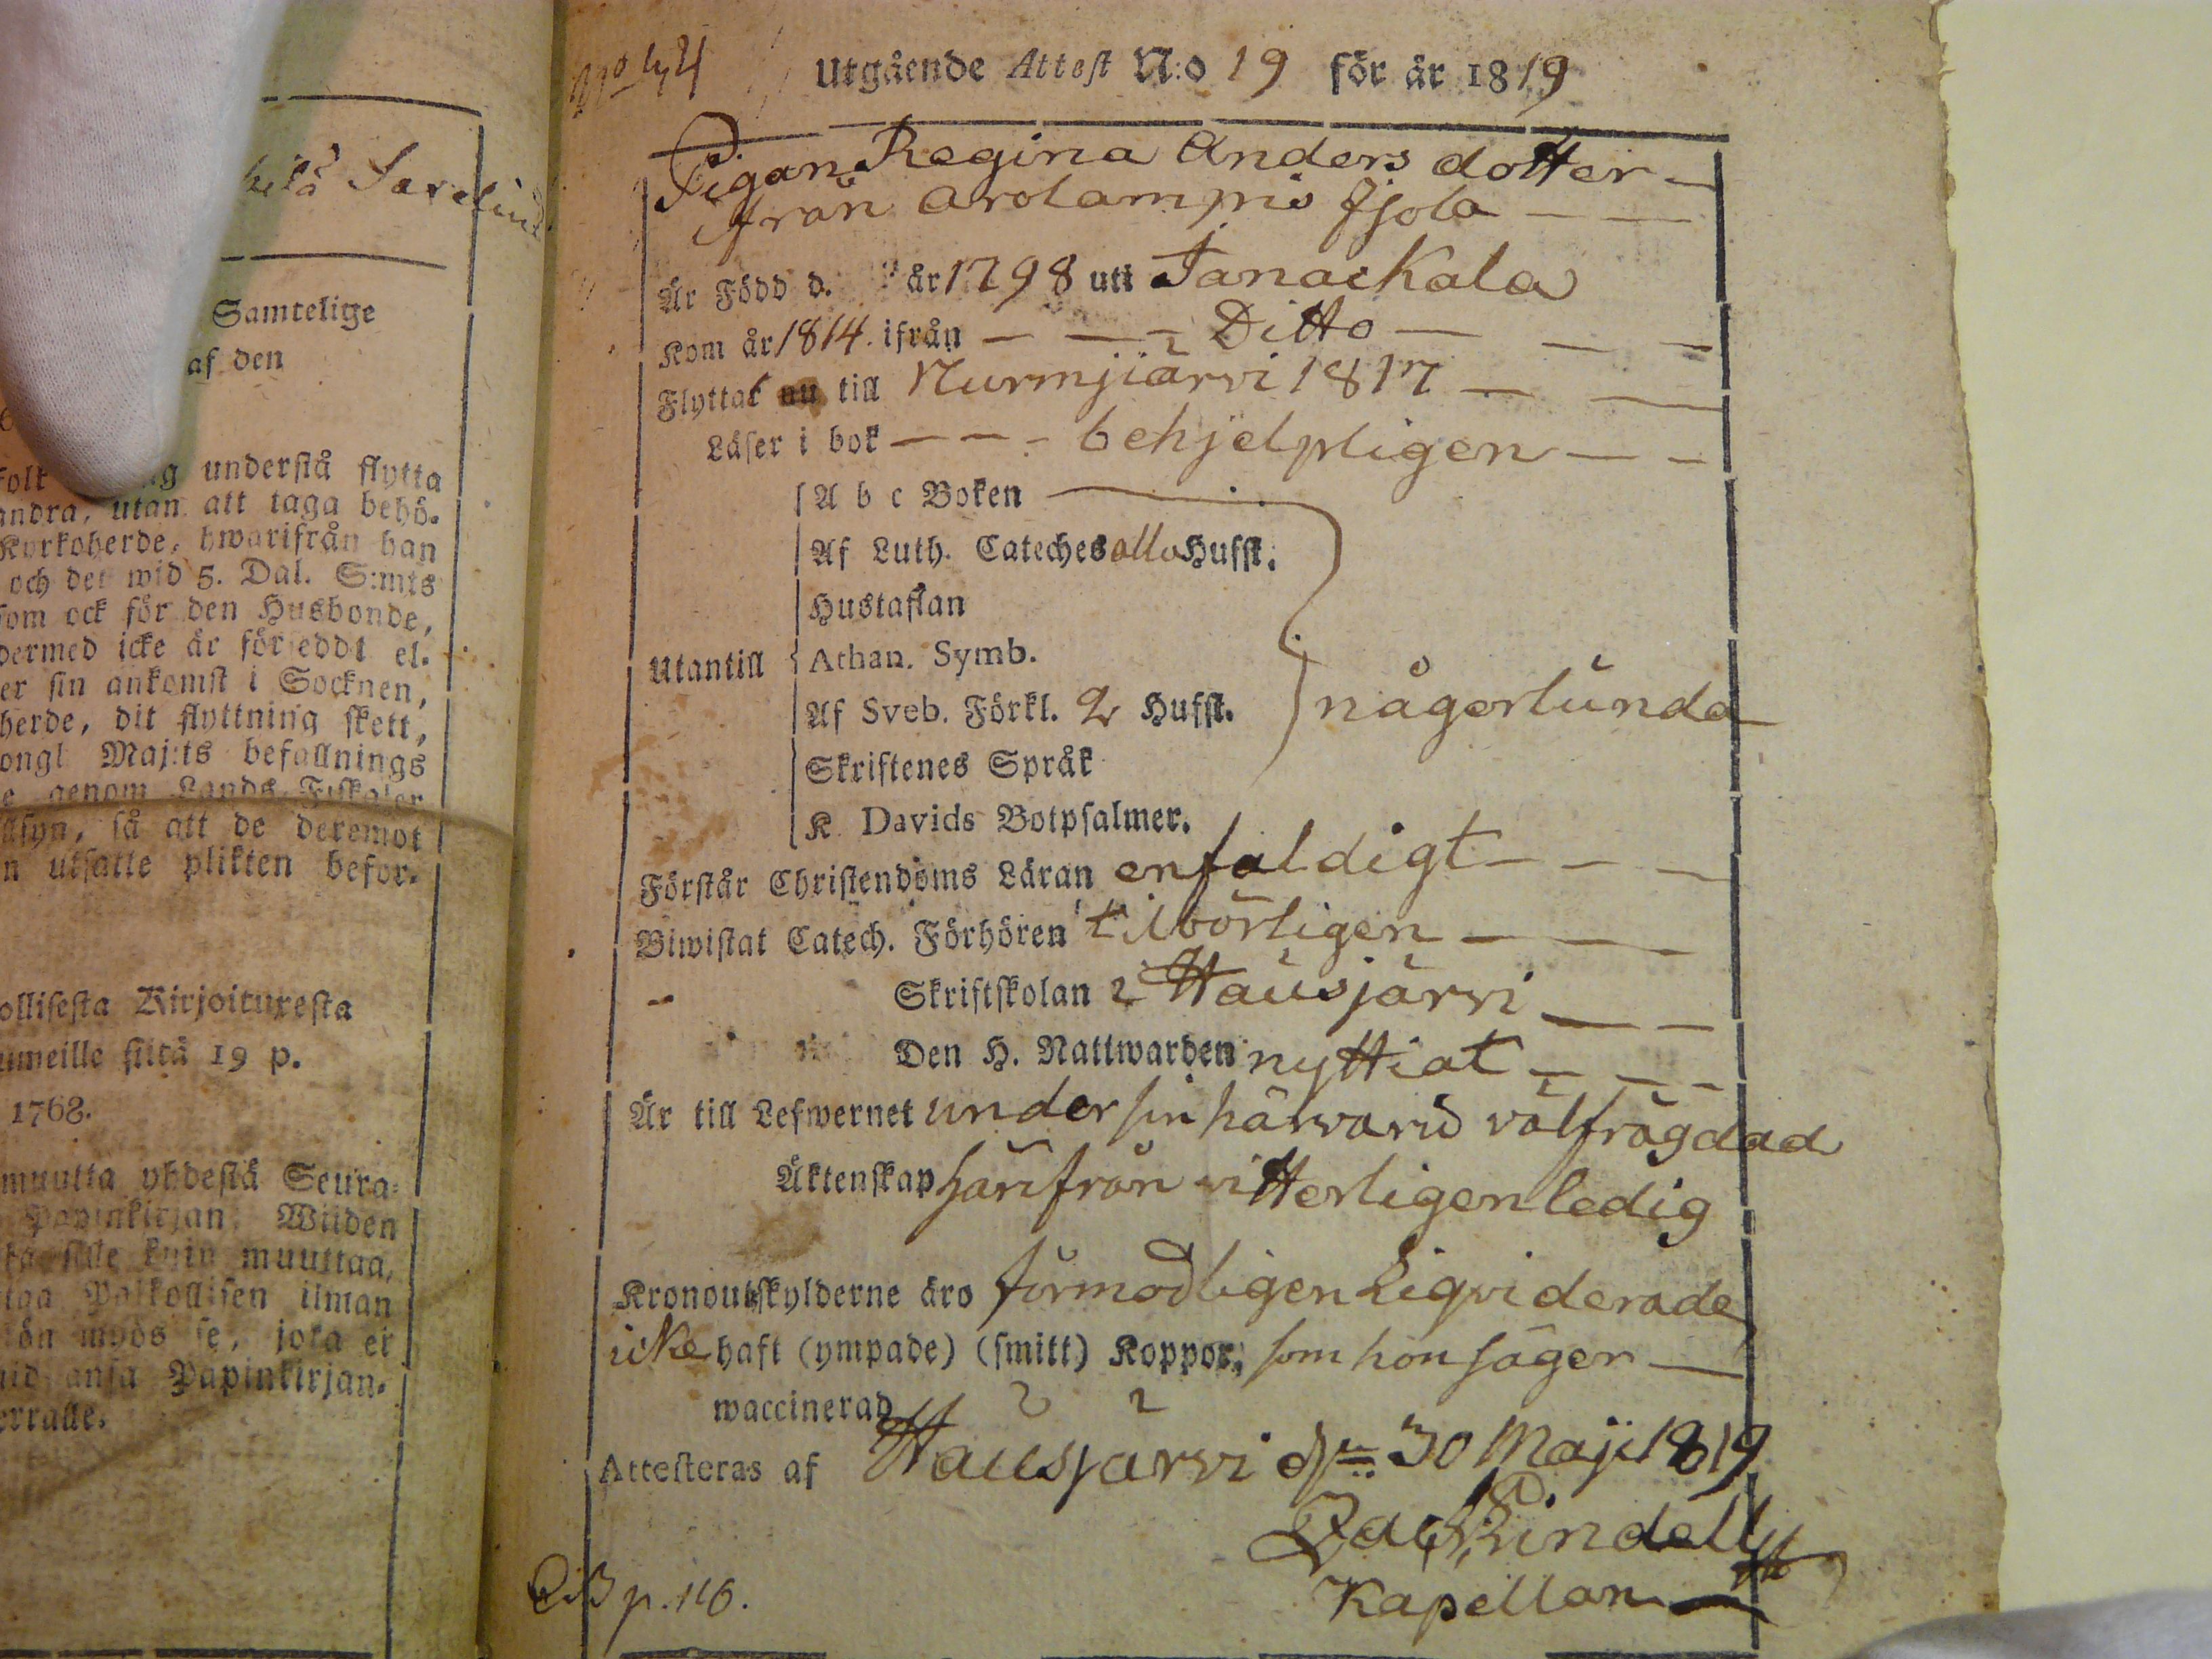 kilä
Samtelige
af den
understå flytta
andra, utan att taga behö-
Kyrkoherde, hwarifrån han
och det wid 5. Dal. S:mts
som ock för den Husbonde,
dermed icke är försedd el-
er sin ankomst i Socknen,
herde, dit flyttning skett,
ongl Maj:ts befallnings
e genom Lands Fiskaler
så att de deremot
n utsatte plikten befor-
ollisesta Kirjoituxesta
umeille siitä 19 p.
1768.
muutta yhdestä Seura-
Papinkirjan. Wiiden
kuin muuttaa,
Palkollisen ilman
ön myös se, joka ei
ansa Papinkirjan-
erralle.
Utgående Attest N:o 19 för år 1819
Pigan Regina Anders dotter
från Arolampis Jjola
Är Född d. år 1798 uti Janackala
Kom år 1814. ifrån Ditto
Flyttat nu till Nurmjiärvi 1817
Läser i bok behjelpligen
A b c Boken
Af Luth. Cateches alla Hufst.
Hustaflan
Utantill Athan. Symb.
Af Sveb. Förkl. 2 Hufst. någorlunda
Skriftenes Språk
K. Davids Botpsalmer.
Förstår Christendoms Läran enfaldigt
Biwistat Catech. Förhören tilbörligen
Skriftskolan i Hausjärvi
Den H. Nattwarden nyttiat
Är till Lefwernet under sin härvarid välfrägdad
Äktenskap härifrån vitterligen ledig
Kronoutskylderne äro förmodligen Liqviderade
icke haft (ympade) (smitt) Koppor, som hon säger
waccinerad
Attesteras af Hausjärvi d. 30 Maji 1819
Zach Lindell
Kapellan
p. 116.